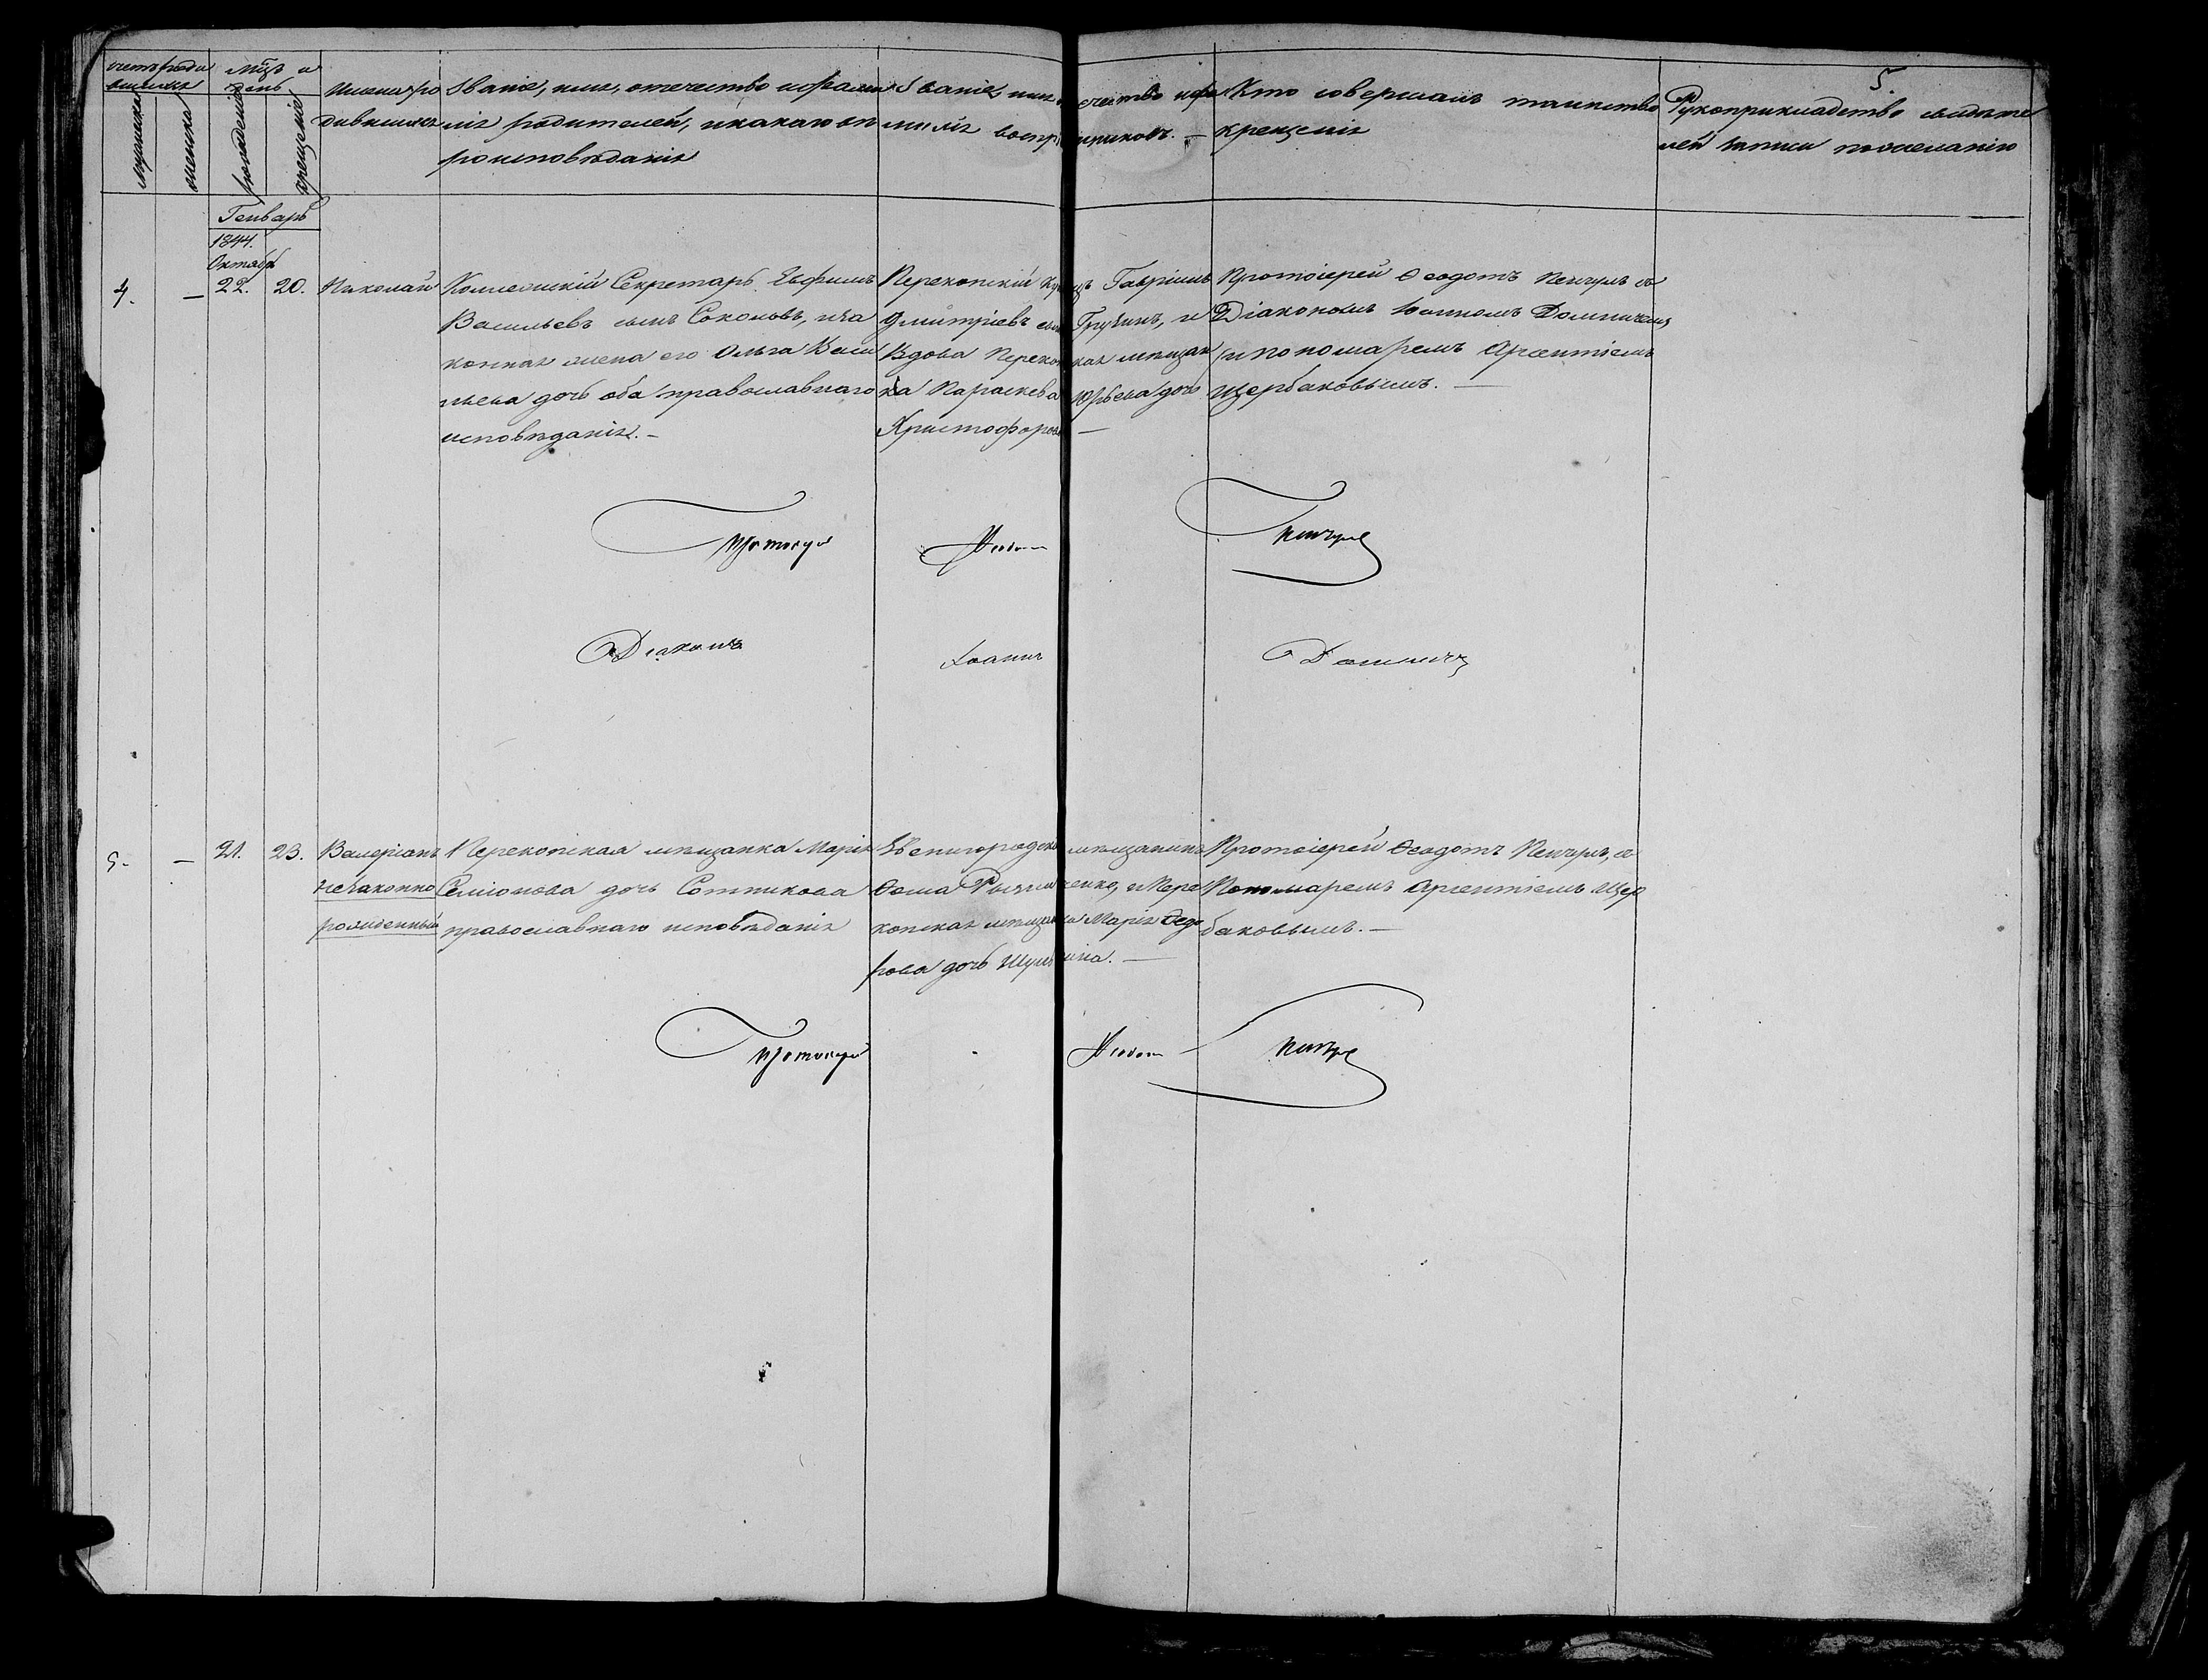 5.
Мѣсяцъ и
день
мужеска
женска
рожденія
крещенія
Имена ро
дившихся
Званіе, имя, отечество и фами
лія родителей, и какаго вѣ
роисповѣданія
Званіе, имя отечество и фа
милія воспріемниковъ. —
Кто совершалъ таинство
крещенія
Рукоприкладство свидѣте
лей записи по желанію
Генварь
1844.
Октябр
4. — 22. 20. Николай
Коллежскій Секретарь Евфимъ
Васильевъ сынъ Соколовъ, и за
конная жена его Ольга Васи
льева дочь оба православнаго
исповѣданія. —
Перекопскій купецъ Гавріилъ
Дмитріевъ сынъ Грузинъ, и
Вдова Перекопская мѣщан
ка Параскева Юрьева дочь
Христофорова —
Протоіерей Ѳеодотъ Пенчулъ съ
Діакономъ Іоанномъ
и пономаремъ Арсентіемъ
Щербаковымъ. —
Протоіерей Ѳеодотъ Пенчулъ
Діаконъ Іоаннъ
5. — 21. 23. Валеріанъ
незаконно
рожденный
Перекопская мѣщанка Марія
Семіонова дочь Сотникова
православнаго исповѣданія
Звенигородскій мѣщанинъ
Ѳома и Пере
копская мѣщанка Марія Ѳедо
рова дочь
Протоіерей Ѳеодотъ Пенчулъ, съ
Пономаремъ Арсентіемъ Щер
баковымъ. —
Протоіерей Ѳеодотъ Пенчулъ